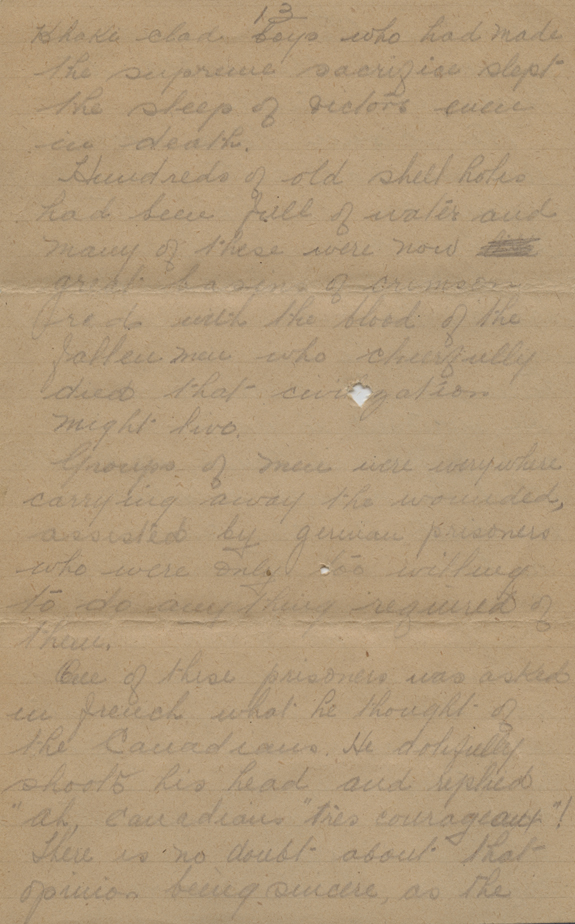 13
Khaki clad boys who had made
the supreme sacrifise slept
the sleep of victors even
in death.
Hundreds of old shell holes
had been full of water and
many of these were now
great basins of crimson
red with the blood of the
fallen men who cheerfully
died that civilization
might live.
Groups of men were everywhere
carrying away the wounded,
assisted by german prisoners
who were only too willing
to do any thing required of
them.
One of these prisoners was asked
in french what he thought of
the Canadians. He dolefully
shook his head and replied
"ah, Canadians "tres courageaux"!
There is no doubt about that
opinion being sincere, as the